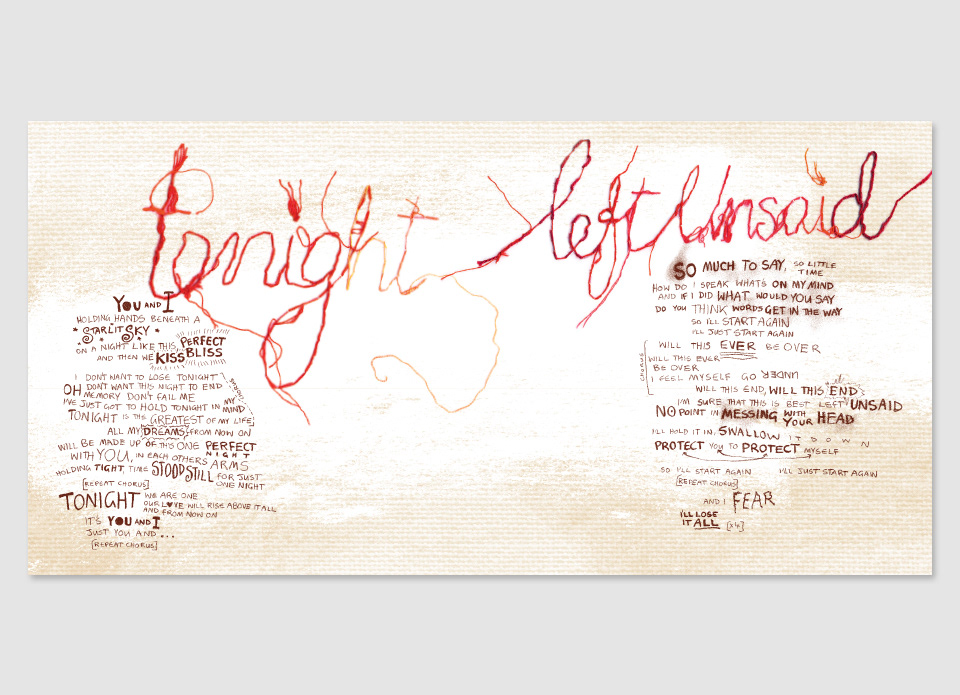 tonight
YOU AND I
HOLDING HANDS BENEATH A
STARLIT SKY
ON A NIGHT LIKE THIS, PERFECT
AND THEN WE KISS BLISS
I DON'T WANT TO LOSE TONIGHT
OH DON'T WANT THIS NIGHT TO END
MEMORY DON'T FAIL ME
I'VE JUST GOT TO HOLD TONIGHT IN MY MIND
TONIGHT IS THE GREATEST OF MY LIFE
ALL MY DREAMS, FROM NOW ON
WILL BE MADE UP OF THIS ONE PERFECT NIGHT
WITH YOU, IN EACH OTHERS ARMS
HOLDING TIGHT, TIME STOOD STILL FOR JUST
ONE NIGHT
[REPEAT CHORUS]
TONIGHT WE ARE ONE
OUR LOVE WILL RISE ABOVE IT ALL
AND FROM NOW ON
IT'S YOU AND I
JUST YOU AND...
[REPEAT CHORUS]
left Unsaid
SO MUCH TO SAY, SO LITTLE
TIME
HOW DO I SPEAK WHAT'S ON MY MIND
AND IF I DID WHAT WOULD YOU SAY
DO YOU THINK WORDS GET IN THE WAY
SO I'LL START AGAIN
I'LL JUST START AGAIN
CHORUS
WILL THIS EVER BE OVER
WILL THIS EVER
BE OVER
I FEEL MYSELF GO UNDER
WILL THIS END, WILL THIS END
I'M SURE THAT THIS IS BEST LEFT UNSAID
NO POINT IN MESSING WITH YOUR HEAD
I'LL HOLD IT IN, SWALLOW IT DOWN
PROTECT YOU TO PROTECT MYSELF
SO I'LL START AGAIN I'LL JUST START AGAIN
[REPEAT CHORUS]
AND I FEAR
I'LL LOSE
IT ALL [x4]